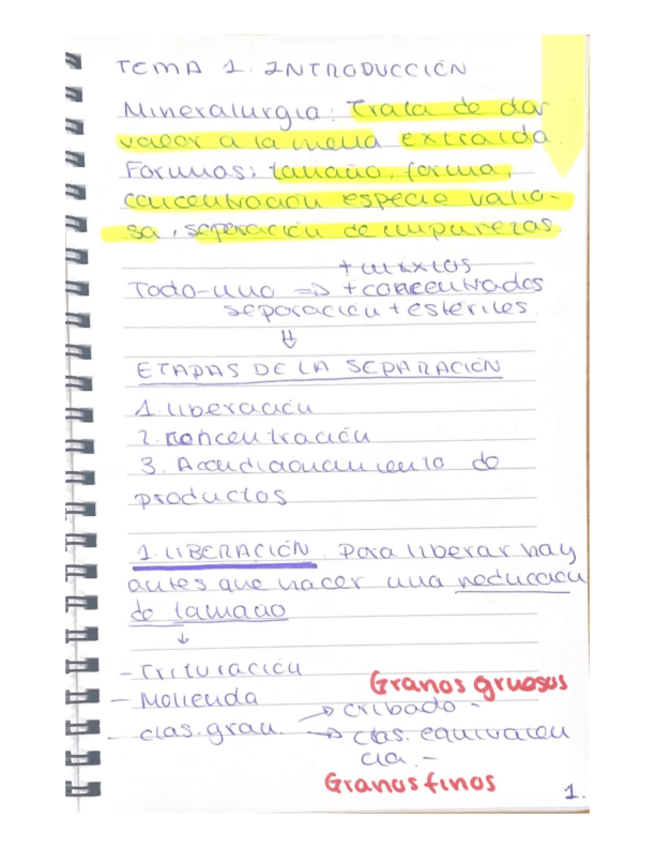 TEMA 1. INTRODUCCIÓN
Mineralurgia: Trata de dar
valor a la mena extraída.
Formas: tamaño, forma,
concentración especie valio-
sa, separación de impurezas.
+ mixtos
Todo-uno => + concentrados
separación + estériles.
⇓
ETAPAS DE LA SEPARACIÓN
1. liberación
2. concentración
3. Acondicionamiento de
productos
1. LIBERACIÓN. Para liberar hay
antes que hacer una reducción
de tamaño
↓
- Trituración
- Molienda
Granos gruesos
- clas. gran. → cribado -
→ clas. equivalen
cia. -
Granos finos
1.